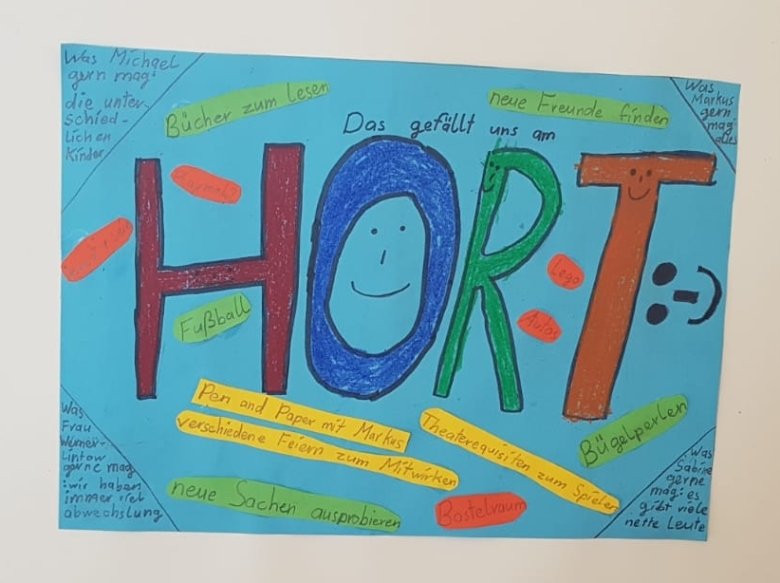 Was Michael
gern mag:
die unter-
schied-
lichen
Kinder
Bücher zum lesen
neue Freunde finden
Was
Markus
gern
mag:
alles
Das gefällt uns am
HORT
Fußball
Lego
Autos
Pen and Paper mit Markus
verschiedene Feiern zum Mitwirken
Theaterequisiten zum Spielen
Bügelperlen
neue Sachen ausprobieren
Bastelraum
Was
Frau
Werner-
Lintow
gerne mag
:wir haben
immer viel
abwechslung
Was
Sabine
gerne
mag: es
gibt viele
nette Leute